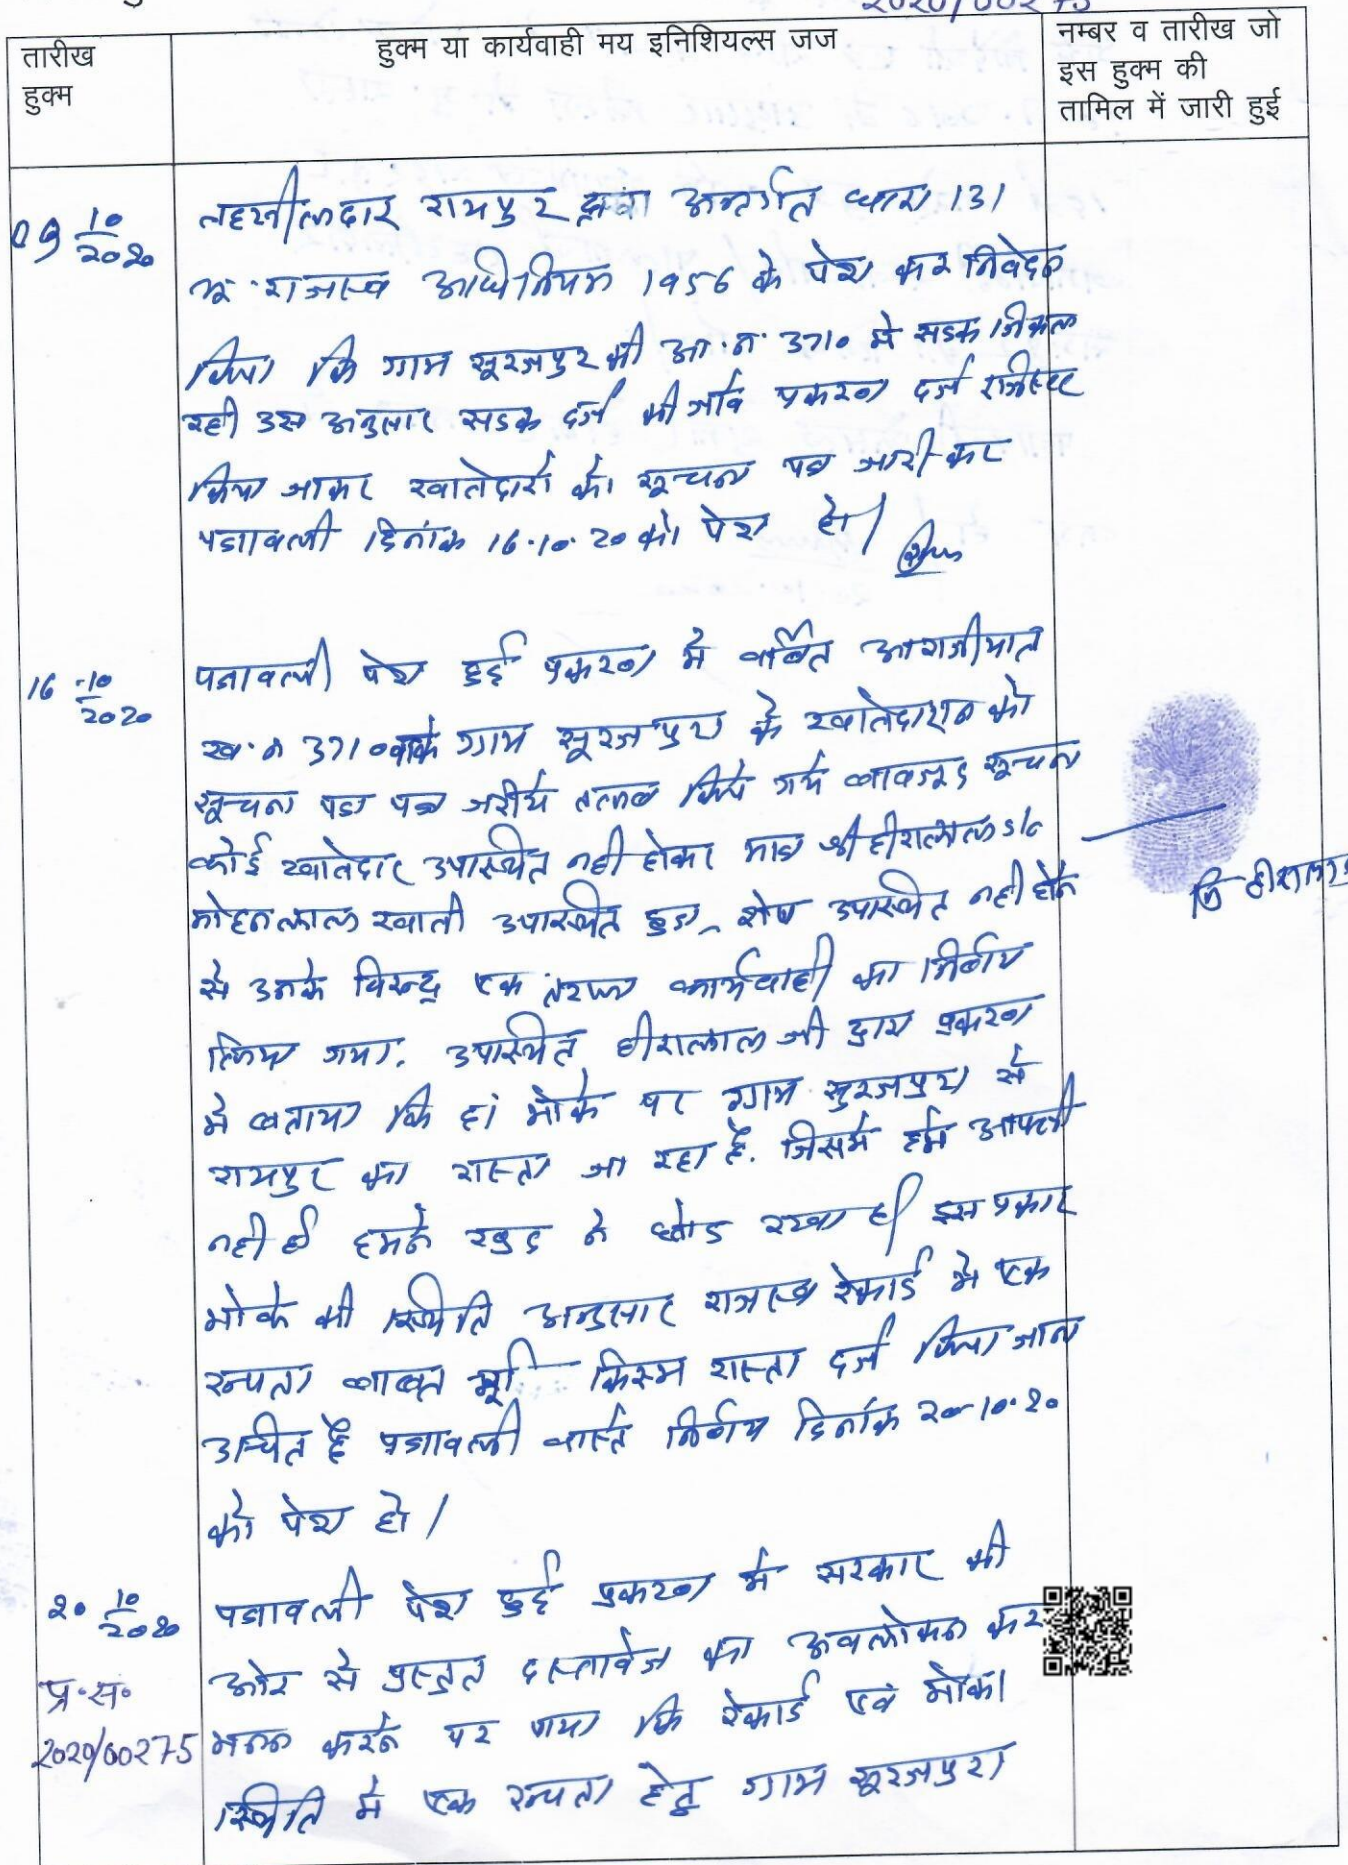 2020/00275
तारीख
हुक्म
हुक्म या कार्यवाही मय इनिशियल्स जज
नम्बर व तारीख जो
इस हुक्म की
तामिल में जारी हुई
09 10/2020
तहसीलदार रायपुर द्वारा अन्तर्गत धारा 131
भू. राजस्व अधिनियम 1956 के पेश कर निवेदन
किया कि ग्राम सूरजपुर की आ.न. 3710 मे सडक निकल
रही उस अनुसार सडक दर्ज की जावे प्रकरण दर्ज रजिस्टर
किया जाकर खातेदारों को सूचना पत्र जारी कर
पत्रावली दिनांक 16.10.20 को पेश हो।
16 10/2020
पत्रावली पेश हुई प्रकरण मे वर्णित आराजीयात
ख.न 3710 वाके ग्राम सूरजपुरा के खातेदारान को
सूचना पत्र जरीये तलब किये गये बावजूद सूचना
कोई खातेदार उपस्थित नही होकर मात्र श्री हीरालाल s/o
मोहनलाल खाती उपस्थित हुआ, शेष उपस्थित नही होने
से उनके विरुद्ध एक तरफा कार्यवाही का निर्णय
लिया गया. उपस्थित हीरालाल जी द्वारा प्रकरण
मे बताया कि हां मोके पर ग्राम सुरजपुरा से
रायपुर का रास्ता जा रहा है. जिसमे हमे आपत्ती
नही है हमने खुद ने छोड रखा है। इस प्रकार
मोके की स्थिति अनुसार राजस्व रेकार्ड मे एक
रूपता बाबत भूमि किस्म रास्ता दर्ज किया जाना
उचित है पत्रावली वास्ते निर्णय दिनांक 20-10-20
को पेश हो।
नि हीरालाल
20 10/2020
प्र.स.
2020/00275
पत्रावली पेश हुई प्रकरण मे सरकार की
ओर से प्रस्तुत दस्तावेज का अवलोकन कर
मनन करने पर पाया कि रेकार्ड एवं मोका
स्थिति मे एक रूपता हेतु ग्राम सूरजपुरा